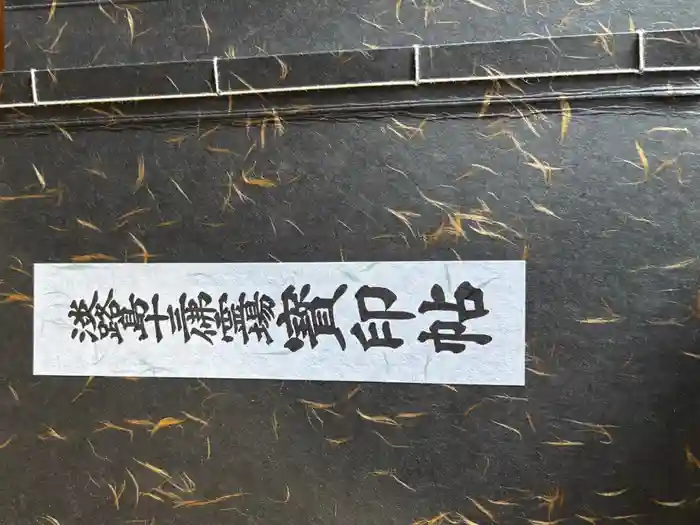 淡路島十三佛霊場寶印帖